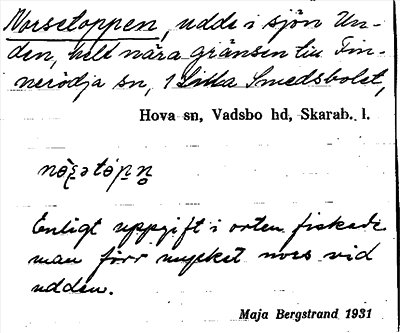 Norsetoppen, udde i sjön Un-
den, helt nära gränsen till Fin-
nerödja sn, 1 Lilla Smedsbolet,
Hova sn, Vadsbo hd, Skarab. l.
Enligt uppgift i orten fiskade
man förr mycket nors vid
udden.
Maja Bergstrand 1931